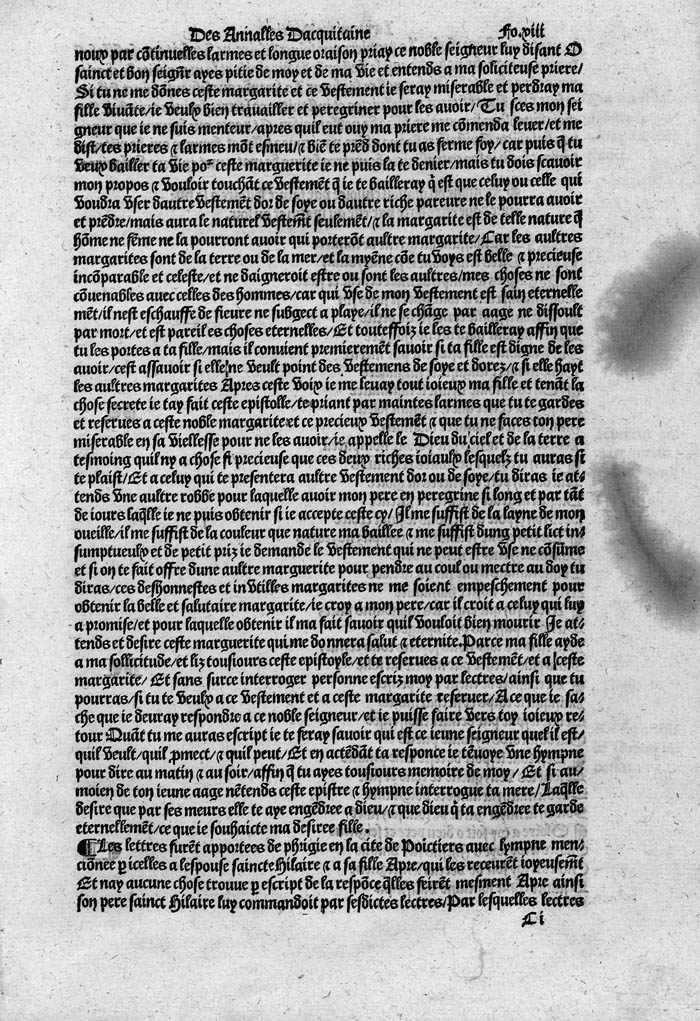 Des Annalles Dacquitaine Fo.viii
noux par cõtinuelles larmes et longue oraison priay ce noble seigneur luy disant O
sainct et bon seignr̃ ayes pitie de moy et de ma vie et entends a ma soliciteuse priere/
Si tu ne me dõnes ceste margarite et ce vestement ie seray miserable et perdray ma
fille viuãte/ie veulx bien trauailler et peregriner pour les auoir/Tu sces mon sei
gneur que ie ne suis menteur/apres quil eut ouy ma priere me cõmenda leuer/et me
dist/tes prieres ⁊ larmes mõt esmeu/⁊ biẽ te prẽd dont tu as ferme foy/ car puis q̃ tu
veux bailler ta vie por ceste marguerite ie ne puis la te denier/mais tu dois scauoir
mon propos ⁊ vouloir touchãt ce vestemẽt q̃ ie te bailleray q̃ est que celuy ou celle qui
voudra vser dautre vestemẽt dor de soye ou dautre riche pareure ne le pourra auoir
et prẽdre/mais aura le naturel vestemẽt seulement/⁊ la margarite est de telle nature q̃
hõme ne fẽme ne la pourront auoir qui porterõt aultre margarite/Car les aultres
margarites sont de la terre ou de la mer/et la myẽne cõe tu voys est belle ⁊ precieuse
incõparable et celeste/et ne daigneroit estre ou sont les aultres/mes choses ne sont
cõuenables auec celles des hommes/car qui vse de mon vestement est sain eternelle
mẽt/il nest eschauffe de fieure ne subgect a playe/il ne se chãge par aage ne dissoult
par mort/et est pareil es choses eternelles/Et touteffoiz ie les te bailleray affin que
tu les portes a ta fille/mais il conuient premieremẽt sauoir si ta fille est digne de les
auoir/cest assauoir si elle ne veult point des vestemens de soye et dorez/⁊ si elle hayt
les aultres margarites Apres ceste voix ie me leuay tout ioieux ma fille et tenãt la
chose secrete ie tay fait ceste epistolle/te priant par maintes larmes que tu te gardes
et reserues a ceste noble margarite et ce precieux vestemẽt ⁊ que tu ne faces ton pere
miserable en sa viellesse pour ne les auoir/ie appelle le Dieu du ciel et de la terre a
tesmoing quil ny a chose si precieuse que ces deux riches ioiaulx lesquelz tu auras si
te plaist/Et a celuy qui te presentera aultre vestement dor ou de soye/tu diras ie at⸗
tends vne aultre robbe pour laquelle auoir mon pere en peregrine si long et par tãt
de iours laq̃lle ie ne puis obtenir si ie accepte ceste cy/ Il me suffist de la layne de mon
oueille/il me suffist de la couleur que nature ma baillee ⁊ me suffist dung petit lict in⸗
sumptueulx et de petit priz ie demande le vestement qui ne peut estre vse ne cõsume
et si on te fait offre dune aultre marguerite pour pendre au coul ou mectre au doy tu
diras/ces deshonnestes et inutiles margarites ne me soient empeschement pour
obtenir la belle et salutaire margarite/ie croy a mon pere/car il croit a celuy qui luy
a promise/et pour laquelle obtenir il ma fait sauoir quil vouloit bien mourir Ie at⸗
tends et desire ceste marguerite qui me donnera salut ⁊ eternite.Parce ma fille ayde
a ma sollicitude/et liz tousiours ceste epistoyle/et te reserues a ce vestemẽt/et a ceste
margarite/ Et sans surce interroger personne escriz moy par lectres/ainsi que tu
pourras/si tu te veulx a ce vestement et a ceste margarite reseruer/A ce que ie sa⸗
che que ie deuray respondre a ce noble seigneur/et ie puisse faire vers toy ioieux re⸗
tour Quãt tu me auras escript ie te feray sauoir qui est ce ieune seigneur quel il est/
quil veult/quil ꝓmect/⁊ quil peut/ Et en actẽdãt ta responce ie tẽuoye vne hympne
pour dire au matin ⁊ au soir/affin q̃ tu ayes tousiours memoire de moy/ Et si au⸗
moien de ton ieune aage nẽtends ceste epistre ⁊ hympne interrogue ta mere/Laq̃lle
desire que par ses meurs elle te aye engẽdree a dieu/⁊ que dieu q̃ ta engẽdree te garde
eternellemẽt/ce que ie souhaicte ma desiree fille.
¶Les lettres furẽt apportees de phrigie en la cite de Poictiers auec lympne men⸗
ciõnee ꝑ icelles a lespouse saincte Hilaire ⁊ a sa fille Apre/qui les receurẽt ioyeusemẽt
Et nay aucune chose trouue ꝑ escript de la respõce q̃lles feirẽt mesment Apre ainsi
son pere sainct Hilaire luy commandoit par sesdictes lectres/Par lesquelles lectres
Ci